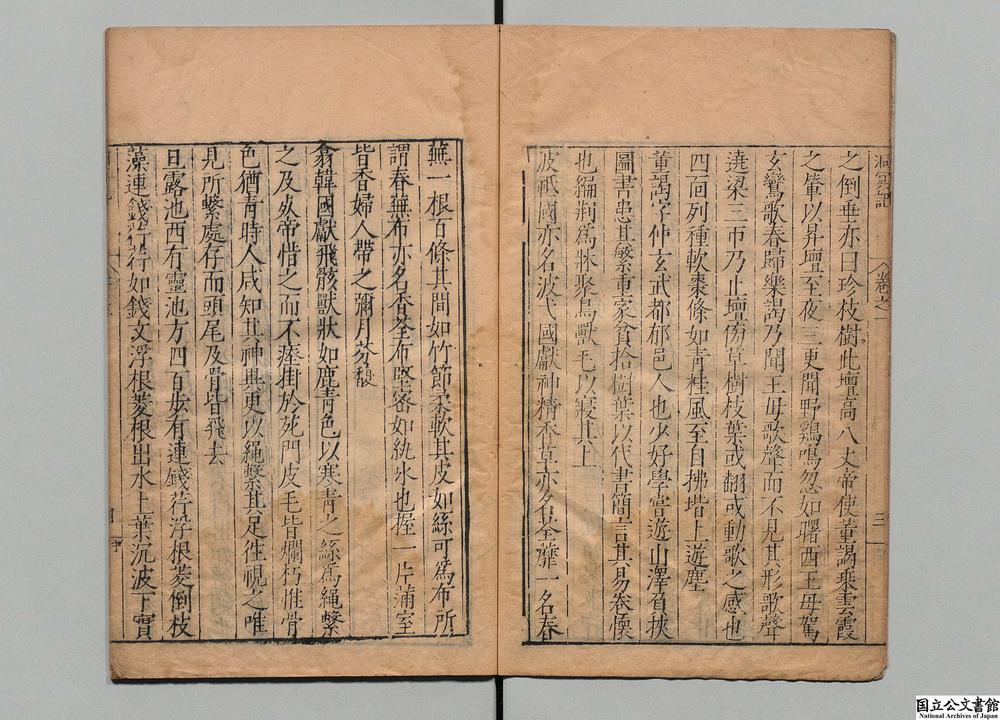 洞冥記 卷之 三
之倒垂亦曰珍枝樹此壇高八丈帝使董謁乘雲霞
之輦以昇壇至夜三更聞野鷄鳴忽如曙西王母駕
玄鸞歌春歸樂謁乃聞王母歌聲而不見其形歌聲
遶梁三帀乃止壇傍草樹枝葉或翻或動歌之感也
四面列種軟棗條如青桂風至自拂堦上遊塵
董謁字仲玄武都郁邑人也少好學嘗遊山澤負挾
圖書患其繁重家貧拾樹葉以代書簡言其易卷懷
也編荆爲牀聚鳥獸毛以寢其上
波祇國亦名波弋國獻神精香草亦名荃蘼一名春
蕪一根百條其間如竹節柔軟其皮如絲可爲布所
謂春蕪布亦名香荃布堅密如紈氷也握一片滿室
皆香婦人帶之彌月芬馥
翕韓國獻飛骸獸狀如鹿青色以寒青之絲爲繩繫
之及死帝惜之而不瘞掛於苑門皮毛皆爛朽惟骨
色猶青時人咸知其神異更以繩繫其足徃視之唯
見所繫處存而頭尾及骨皆飛去
旦露池西有靈池方四百步有連錢荇浮根菱倒枝
藻連錢荇荇如錢文浮根菱根出水上葉沉波下實
国立公文書館
National Archives of Japan